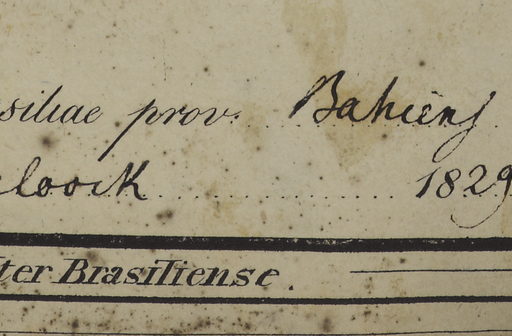 siliae prov. Bahiens
loock 1829
ter Brasiliense.